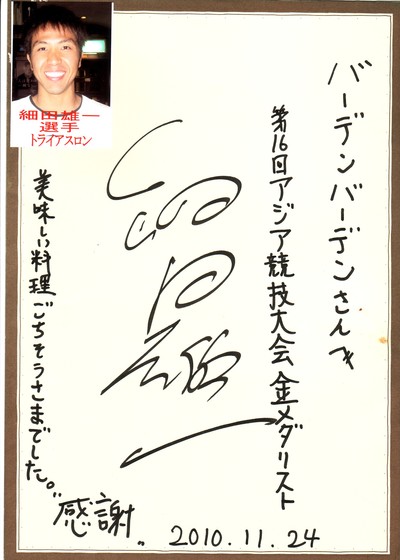 細田雄一
選手
トライアスロン
バーデンバーデンさんへ
第16回アジア競技大会 金メダリスト
細田雄一
美味しい料理ごちそうさまでした。
"感謝"
2010.11.24